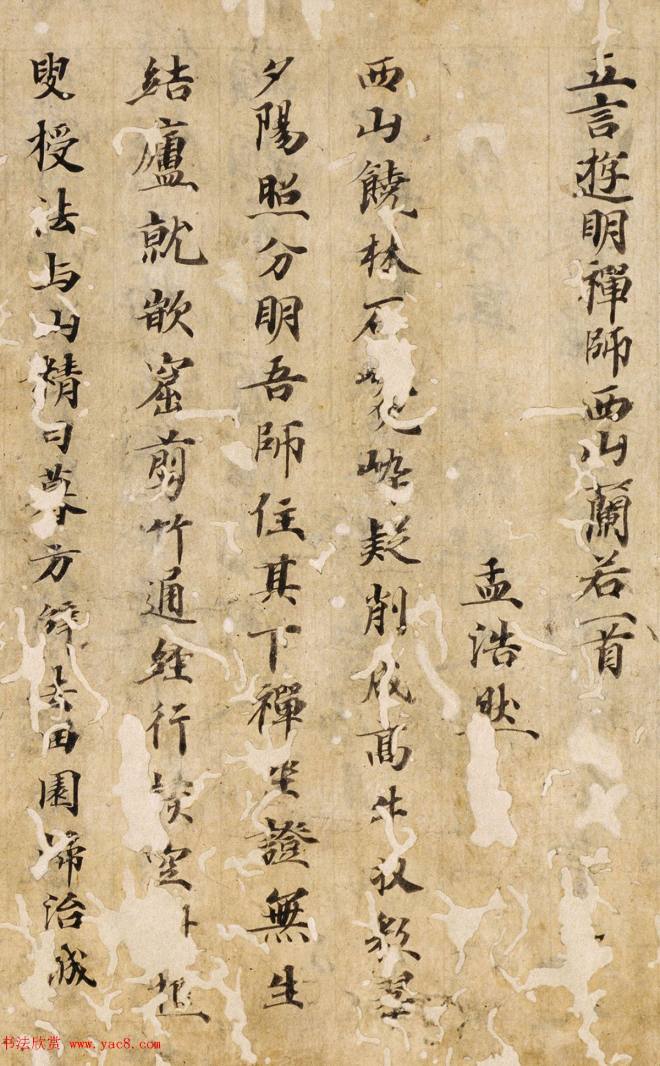 五言遊明禪師西山蘭若一首
孟浩然
西山饒林石疑削成高收彩翠
夕陽照分明吾師住其下禪坐證無生
結廬就嵌窟剪竹通經行談空
叟授法与山精日暮方辞去田園歸治城
书法欣赏 www.yac8.com